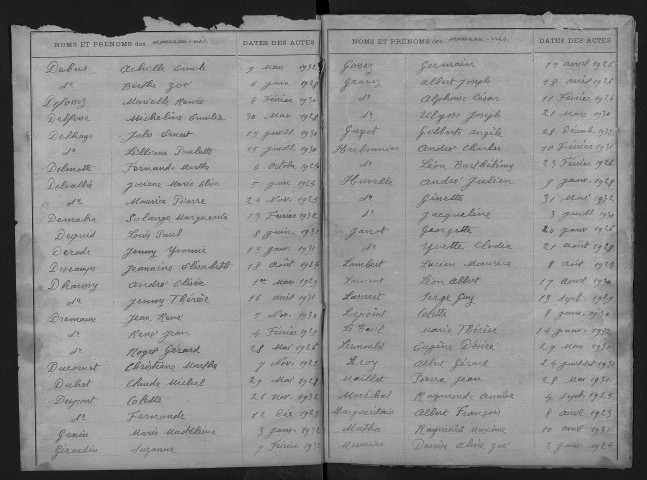 NOMS ET PRENOMS des nouveau-nés DATES DES ACTES
Debus Achille Emile 9 Mai 1932
do Berthe Zoé 6 juin 1928
Marcelle Renée 8 Février 1930
Micheline 30 Mai 1928
Delhaye Jules Ernest 13 juillet 1930
do Lilliane Paulette 15 juillet 1930
Delmotte Fernande Marthe 6 Octobre 1924
Josiane Marie 5 juin 1924
do Maurice Pierre 24 Nov. 1925
Demabre Solange Marguerite 19 Février 1932
Louis Paul 8 juin
Derode Jenny Yvonne 13 janv. 1931
Descamps Jeannine Elisabeth 18 Août 1924
Dhaussy André Elisée 1er Mars 1929
do Jenny Thérèse 16 avril 1931
Dremaux Jean René 5 Nov. 1930
do René Jean 4 Février 1929
do Roger Gérard 28 Mai 1926
Ducourt Christiane Marthe 7 Nov. 1925
Duhot Claude Michel 29 Mai 1928
Dupont Colette 26 Nov. 1932
do Fernande 12 Déc. 1923
Genin Marie Madeleine 3 janv. 1932
Girardin Suzanne 7 Février 1932
NOMS ET PRENOMS des nouveau-nés DATES DES ACTES
Gosez Germain 19 avril 1926
Gravez Albert Joseph 18 avril 1926
do Alphonse César 11 Février 1924
do Ulysse Joseph 21 Mars 1930
Guyot Gilberte Angèle 28 Décembre 1932
Harbonnier André Charles 10 Février 1931
do Léon Barthélémy 23 Février 1926
Huvelle André Julien 9 janv. 1928
do Ginette 31 Mai 1932
do Jacqueline 3 juillet 1930
Janot Georgette 20 janv. 1926
do Yvette Clodia 21 août 1928
Lambert Lucien Maurice 8 août 1924
Laurent Léon Albert 17 avril 1930
Lasnier Serge Guy 13 Sept. 1929
Lepoint Colette 8 janv. 1930
Le Bail Marie Thérèse 14 janv. 1932
Eugène Désiré 29 Mai 1931
Leroy Albert Gérard 24 juillet 1931
Maillet Pierre Jean 28 Mai 1931
Maréchal Raymonde 4 Sept. 1925
Margueritain Albert François 8 avril 1923
Matha Maxime 10 avril 1931
Meunier Denise Aline Zoé 2 janv. 1924